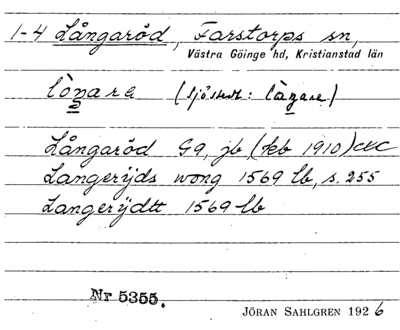 1-4 Långaröd, Farstorps sn,
Västra Göinge hd, Kristianstad län
Långaröd G9, jb, (kb 1910) etc
Langerijds wong 1569 lb, s. 255
Langerijdtt 1569 lb
Nr 5355.
JÖRAN SAHLGREN 1926